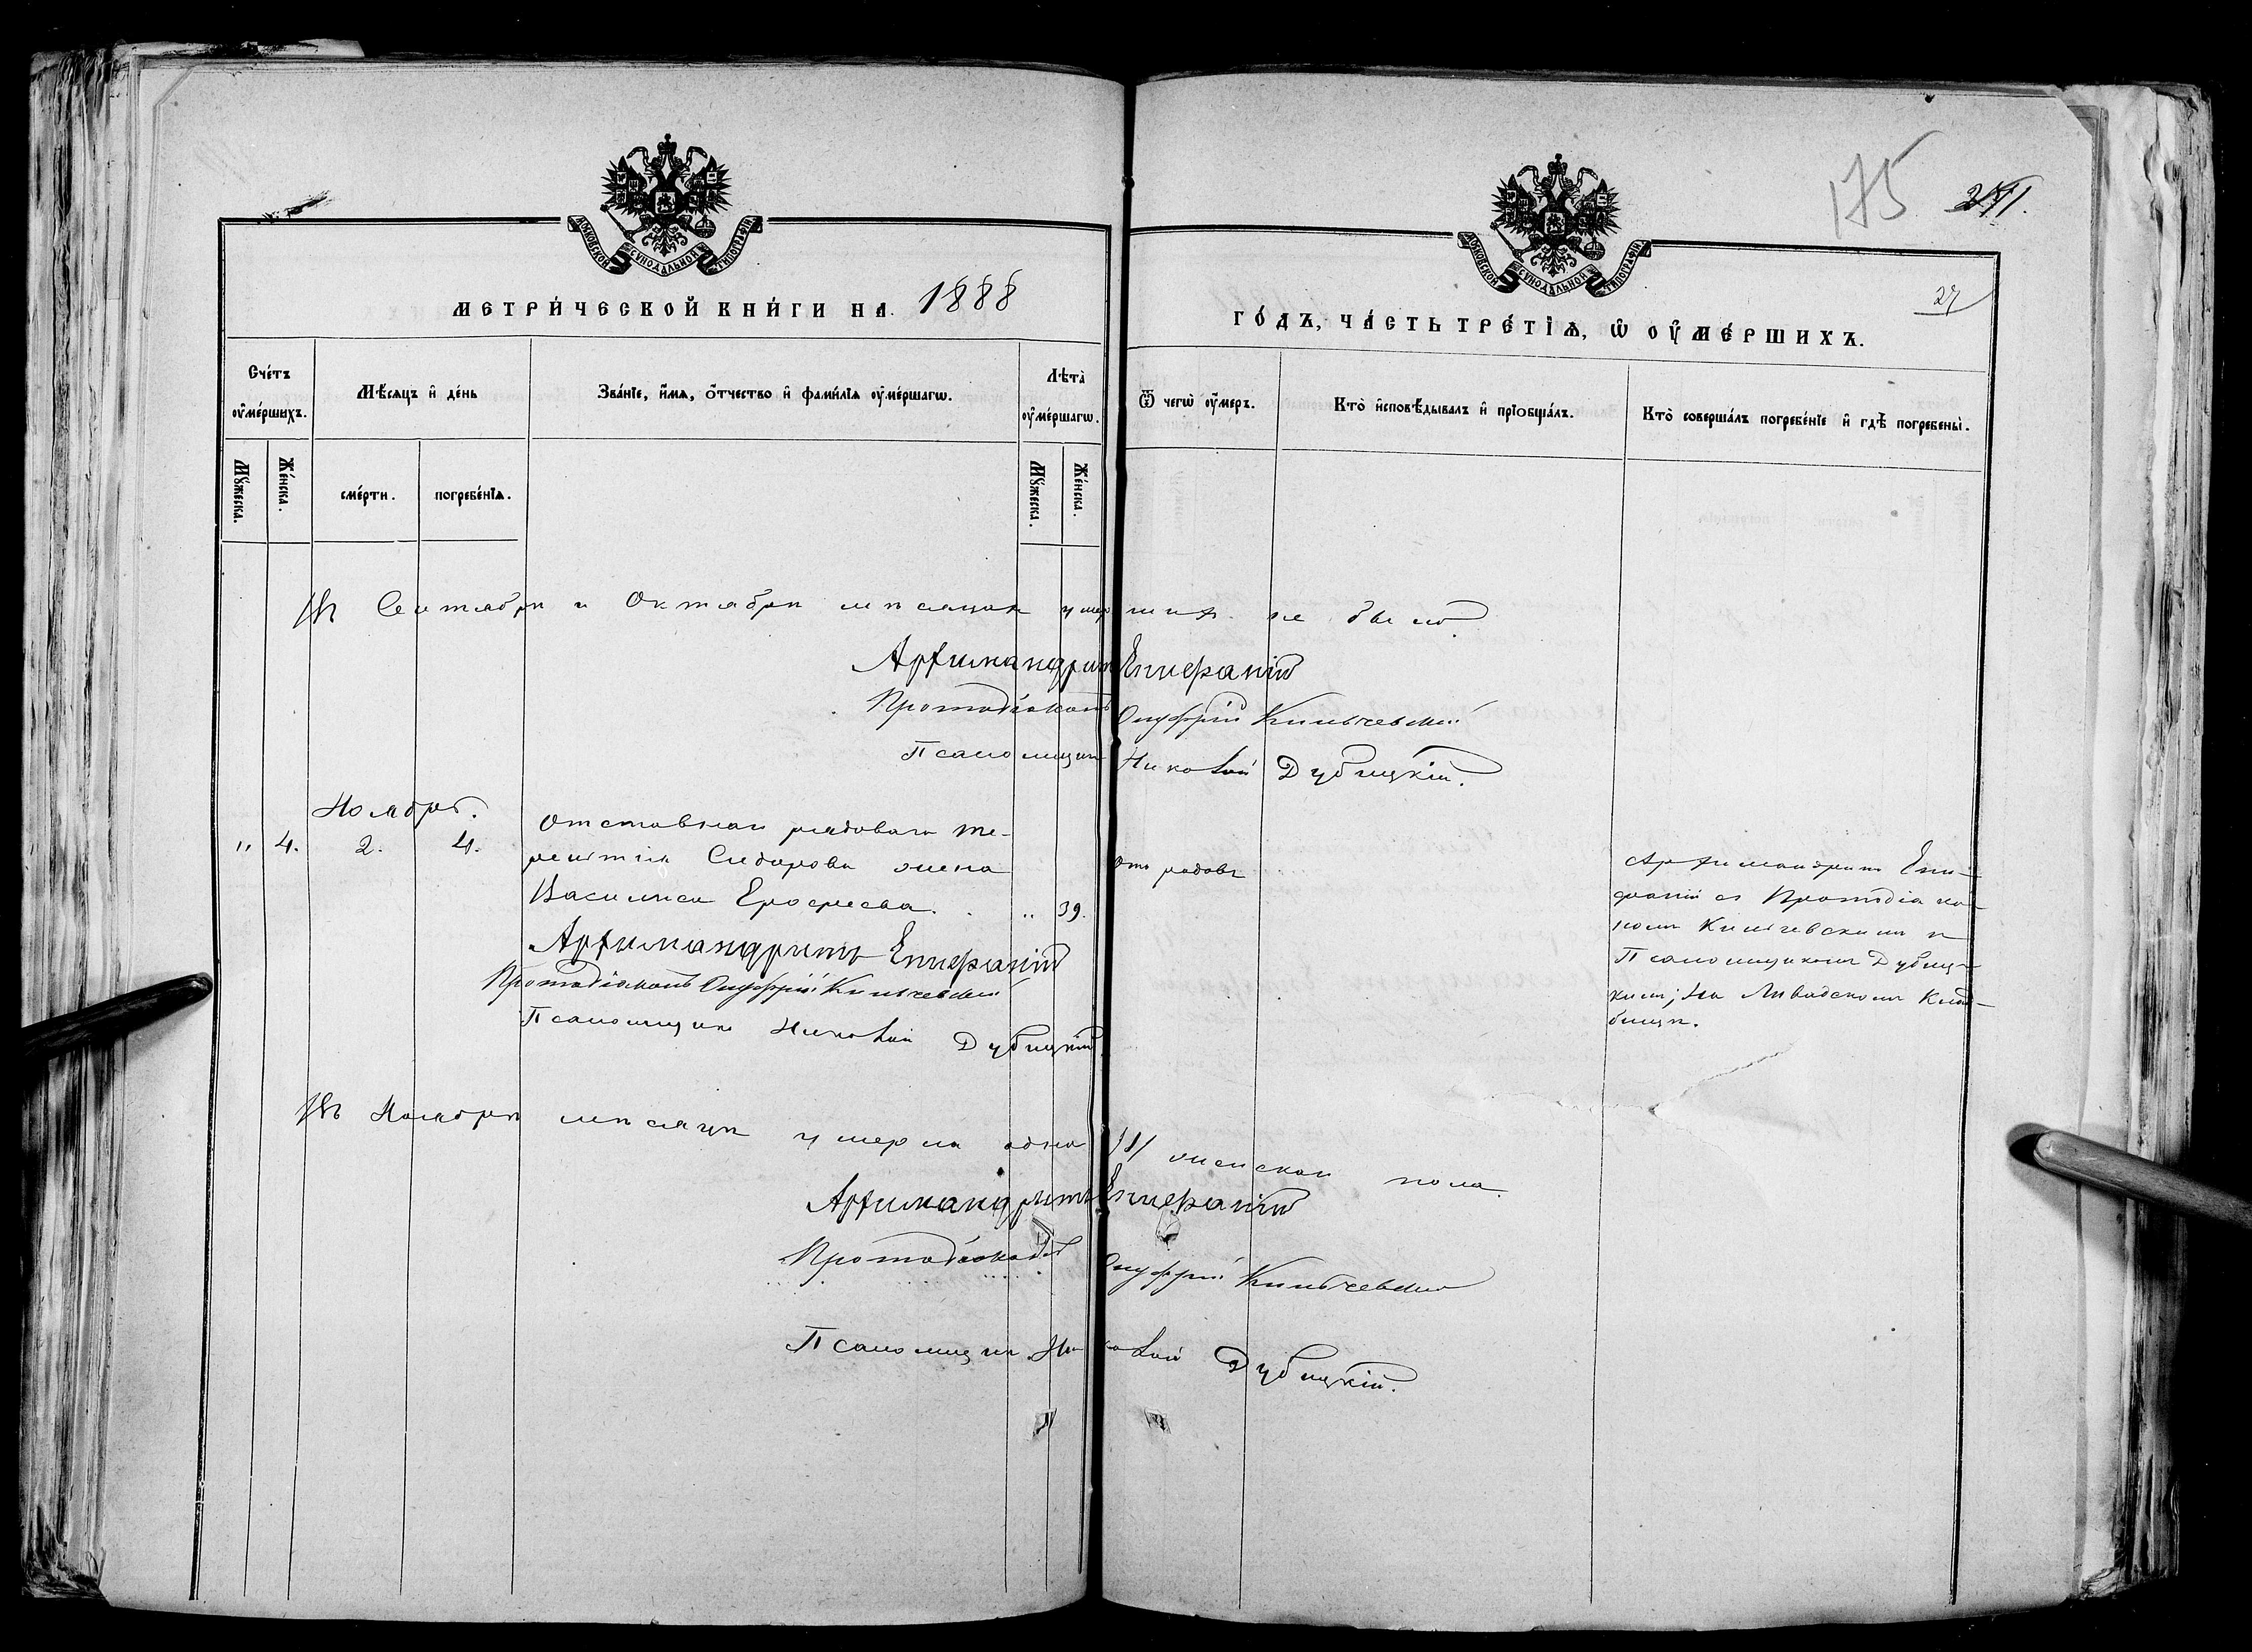 175
27
МОСКОВСКОЙ СУНОДАЛЬНОЙ ТИПОГРАФІИ
МОСКОВСКОЙ СУНОДАЛЬНОЙ ТИПОГРАФІИ
МЕТРИ́ЧЕСКОЙ КНИ́ГИ НА 1888
ГО́ДЪ, ЧА́СТЬ ТРЕ́ТІѦ, Ѡ҆ ОУ҆МЕ́РШИХЪ.
Сче́тъ оу҆ме́ршихъ.
Мѣ́сяцъ и҆ де́нь
Зва́нїе, и҆́мѧ, о҆́тчество и҆ фами́лїѧ оу҆ме́ршагѡ.
Лѣта̀ оу҆ме́ршагѡ.
Ѿ чегѡ̀ оу҆́меръ.
Кто̀ и҆сповѣ́дывалъ и҆ прїобща́лъ.
Кто̀ соверша́лъ погребе́нїе и҆ гдѣ̀ погребены̀.
Мꙋ́жеска.
Же́нска.
сме́рти.
погребе́нїѧ.
Мꙋ́жеска.
Же́нска.
Въ Сентябрѣ и Октябрѣ мѣсяцах умерших не было.
Архимандритъ Епифаній
Протодіаконъ Онуфрій Кипычевскій
Псаломщик Николай Дубицкій.
Ноябрь.
" 4. 2. 4. Отставнаго рядоваго Те-
рентія Сидорова жена
Василиса Ерофеева. " 39.
отъ родовъ
Архимандрит Епи-
фаній съ Протодіако-
ном Кипычевским и
Псаломщиком Дубиц-
ким; На Ливадском Клад-
бищѣ.
Архимандритъ Епифаній
Протодіаконъ Онуфрій Кипычевскій
Псаломщик Николай Дубицкій
Въ Ноябрѣ мѣсяцѣ умерла одна /1/ женскаго пола.
Архимандритъ Епифаній
Протодіаконъ Онуфрій Кипычевскій
Псаломщик Николай Дубицкій.